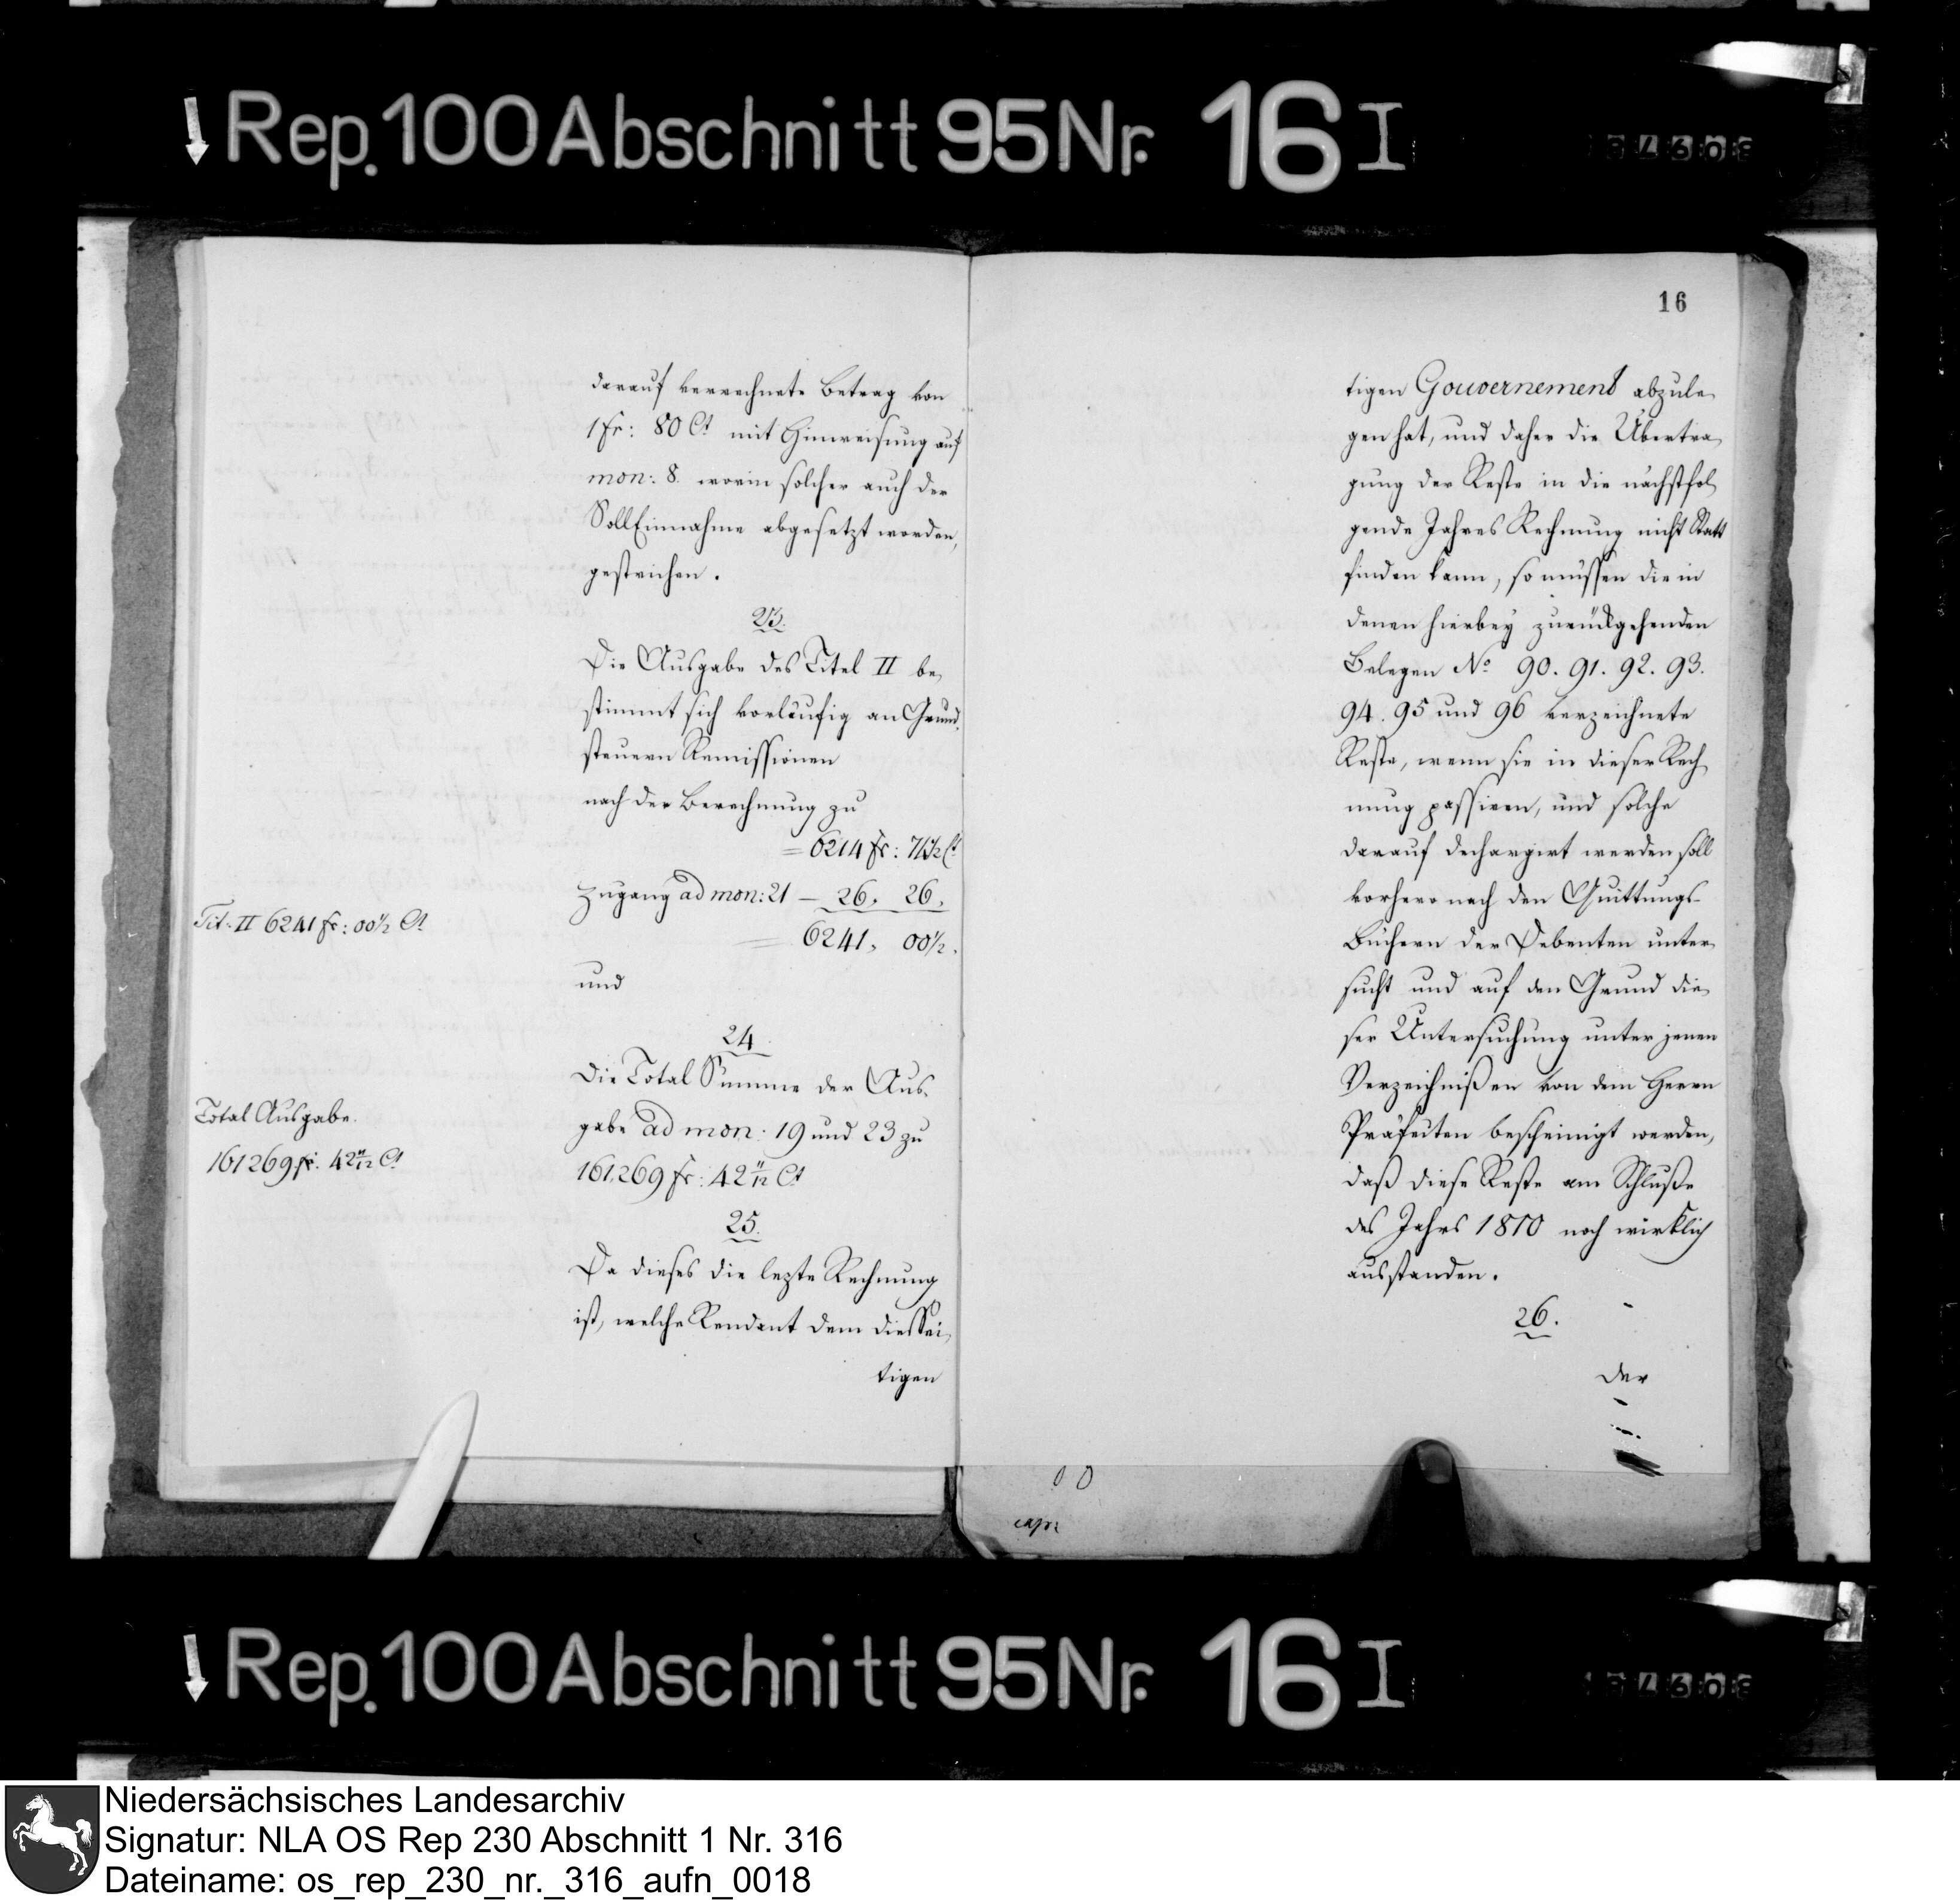 Rep. 100 Abschnitt 95 Nr. 16 I
darauf verrechnete Betrag von
1 fr: 80 Ct mit Hinweisung auf
mon: 8. worin solcher auch der
SollEinnahme abgesetzt worden,
gestrichen.
23.
Die Ausgabe des Titel II be,
stimmt sich vorläufig an Grund,
steuern Remissionen
nach der Berechnung zu
= 6214 fr: 74½ Ct
Zugang ad mon: 21 — 26, 26,
Tit: II 6241 fr: 00½ Ct
= 6241, 00½,
und
24
Die Total Summe der Aus,
Total Ausgabe.
gabe ad mon: 19 und 23 zu
161269 fr: 42 11/12 Ct
161,269 fr: 42 11/12 Ct
25.
Da dieses die lezte Rechnung
ist, welche Rendant dem diessei,
tigen
16
tigen Gouvernement abzule,
gen hat, und daher die Übertra,
gung der Reste in die nächstfol,
gende Jahres Rechnung nicht Statt
finden kann, so müssen die in
denen hierbey zurückgehenden
Belegen No 90. 91. 92. 93.
94. 95 und 96 verzeichnete
Reste, wenn sie in dieser Rech,
nung passiren, und solche
darauf dechargirt werden soll
vorhero nach den Quittungs-
Büchern der Debenten unter,
sucht und auf den Grund die,
ser Untersuchung unter jenen
Verzeichnißen von dem Herrn
Präfecten bescheinigt werden,
daß diese Reste am Schluße
des Jahrs 1810 noch wirklich
ausstanden.
26.
der
Rep. 100 Abschnitt 95 Nr. 16 I
Niedersächsisches Landesarchiv
Signatur: NLA OS Rep 230 Abschnitt 1 Nr. 316
Dateiname: os_rep_230_nr._316_aufn_0018